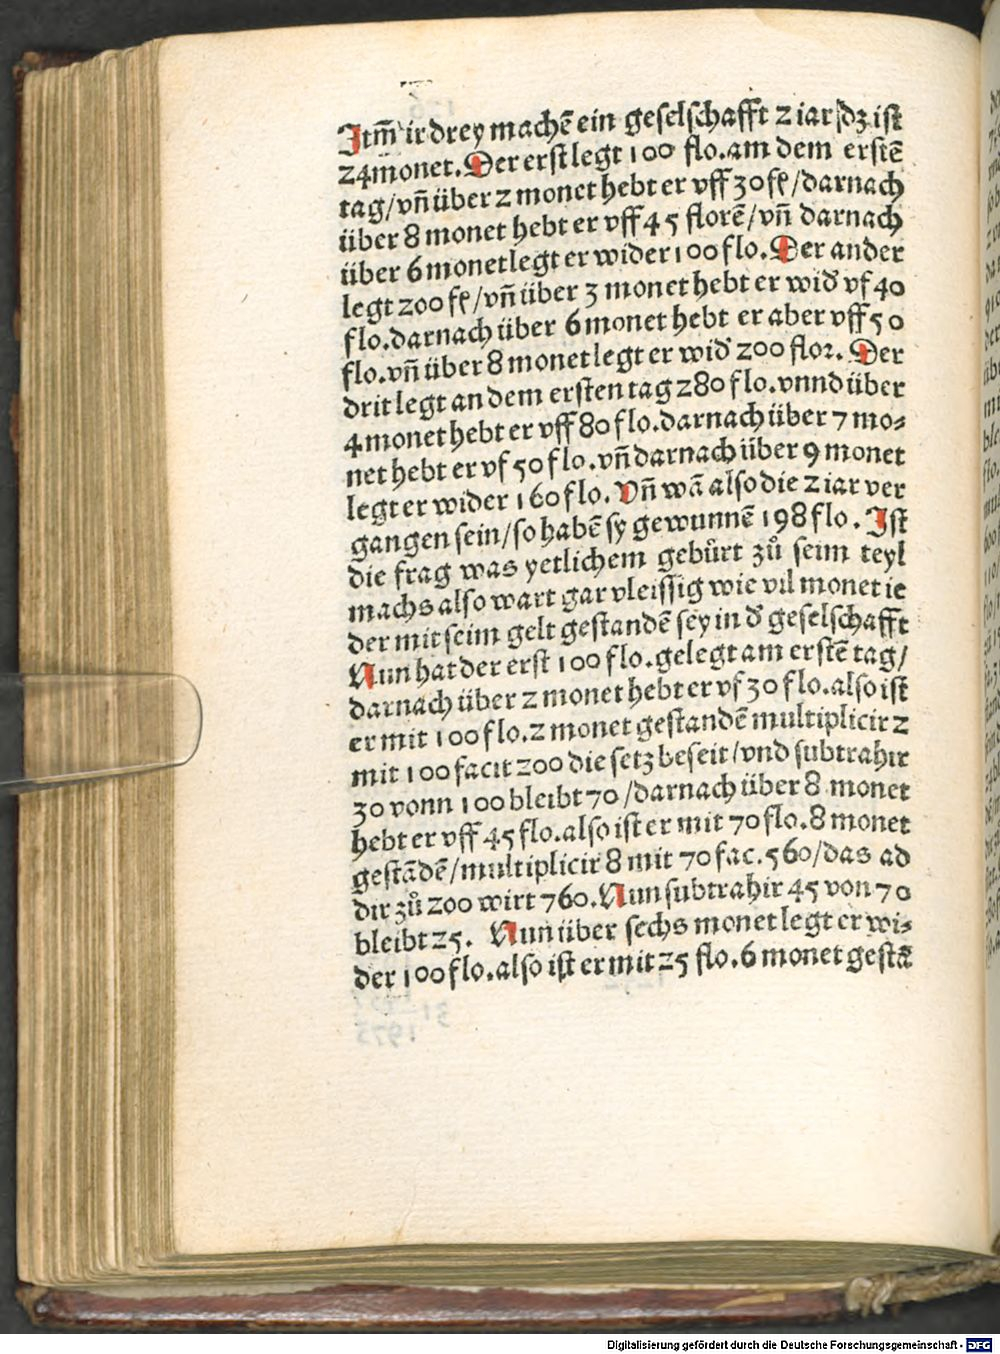 Itm̄ ir drey machē ein geselschafft 2 iar/dz ist
24monet. Der erst legt 100 flo. am dem erstē
tag/vn̄ über 2 monet hebt er vff 30 fl/darnach
über 8 monet hebt er vff 45 florē/vn̄ darnach
über 6 monet legt er wider 100 flo. Der ander
legt 200 fl/vn̄ über 3 monet hebt er wid̕ vf 40
flo. darnach über 6 monet hebt er aber vff 50
flo. vn̄ über 8 monet legt er wid̕ 200 flor. Der
drit legt an dem ersten tag 280 flo. vnnd über
4 monet hebt er vff 80 flo. darnach über 7 mo⸗
net hebt er vf 50 flo. vn̄ darnach über 9 monet
legt er wider 160 flo. Vn̄ wā also die 2 iar ver
gangen sein/so habē sy gewunnē 198 flo. Ist
die frag was yetlichem gebürt zů seim teyl
machs also wart gar vleissig wie vil monet ie
der mit seim gelt gestandē sey in d̕ geselschafft
Nun hat der erst 100 flo. gelegt am erstē tag/
darnach über 2 monet hebt er vf 30 flo. also ist
er mit 100 flo. 2 monet gestandē multiplicir 2
mit 100 facit 200 die setz beseit/vnd subtrahir
30 vonn 100 bleibt 70/darnach über 8 monet
hebt er vff 45 flo. also ist er mit 70 flo. 8 monet
gestādē/multiplicir 8 mit 70 fac. 560/das ad
dir zů 200 wirt 760. Nun subtrahir 45 von 70
bleibt 25. Nun über sechs monet legt er wi⸗
der 100 flo. also ist er mit 25 flo. 6 monet gestā
Digitalisierung gefördert durch die Deutsche Forschungsgemeinschaft - DFG